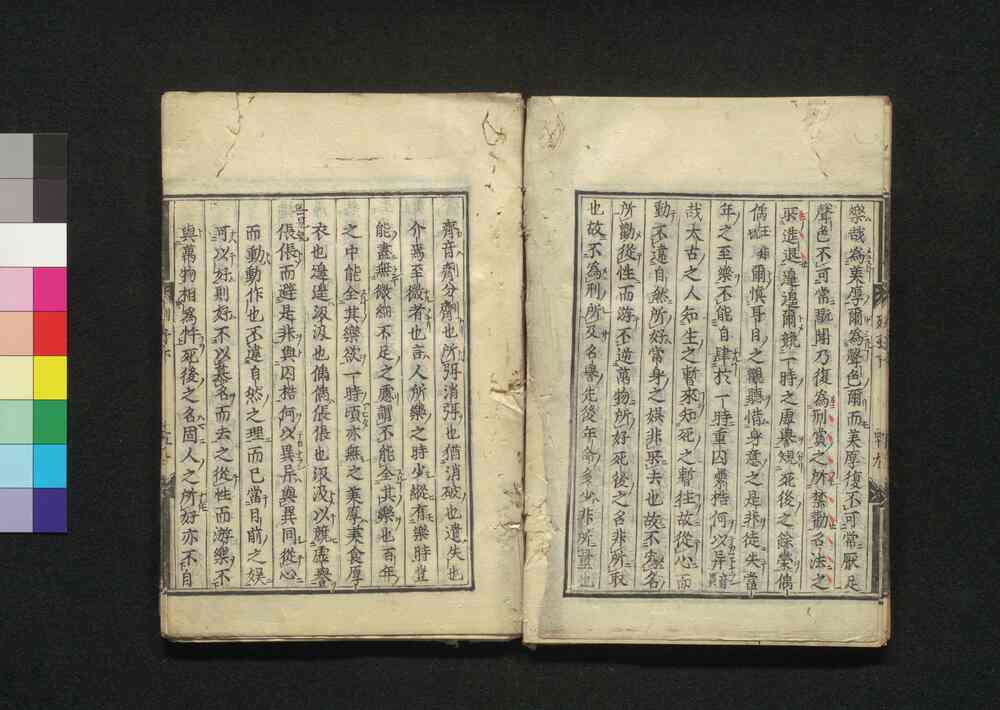 樂哉為美厚爾為聲色爾而美厚復不可常厭足
聲色不可常翫聞乃復為刑賞之所禁勸名法之
所進退遑遑爾競一時之虛譽規死後之餘榮偊
偊爾慎耳目之觀聽惜身意之是非徒失當
年之至樂不能自肆於一時重囚纍梏何以异
哉太古之人知生之暫來知死之暫往故從心而
動不違自然所好當身之娛非所去也故不為名
所勸從性而游不逆萬物所好死後之名非所取
也故不為刑所及名譽先後年命多少非所量也
齊音劑分劑也所弭消弭也猶消破也遺失也
介焉至微者也言人所樂之時少縱有樂時豈
能盡無微細不足之慮謂不能全其樂也百年
之中能全其樂欲一時頃亦無之美厚美食厚
衣也遑遑汲汲也偊偊倀倀也汲汲以競虛譽
倀倀而避是非與囚梏何以異异與異同從心
而動動作也不違自然之理而已當目前之娛
可以好則好不以慕名而去之從性而游樂不
與萬物相為忤死後之名固人之所好亦不自